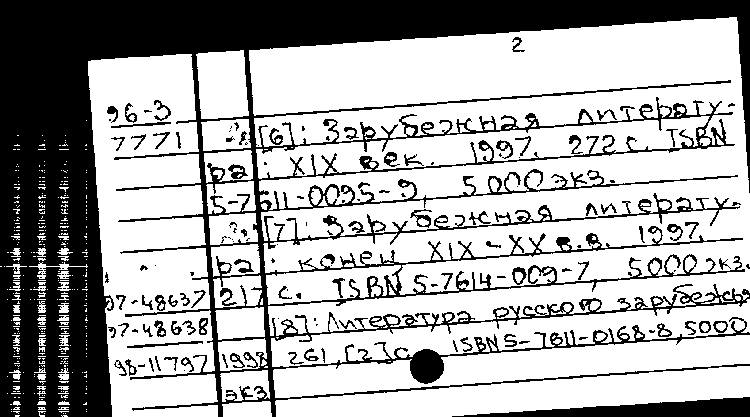 2
96-3
7771 [6]: Зарубежная литерату-
ра : XIX век. 1997. 272 с. ISBN
5-7611-0095-9, 5000 экз.
[7]: Зарубежная литерату-
ра : конец XIX - XX в.в. 1997.
97-48637 217 с. ISBN 5-7614-009-7, 5000 экз.
97-48638 [8]: Литература русского зарубежья
98-11797 1998 261, [2] с ISBN 5-7611-0168-8, 5000
экз